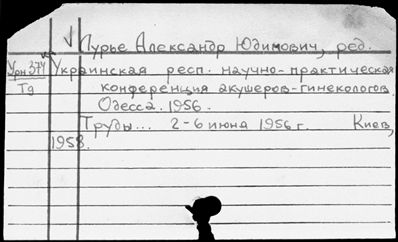 Лурье Александр Юдимович, ред.
Урн 374 Украинская респ. научно-практическая
Тд конференция акушеров-гинекологов.
Одесса. 1956.
Труды... 2-6 июня 1956 г. Киев,
1958.